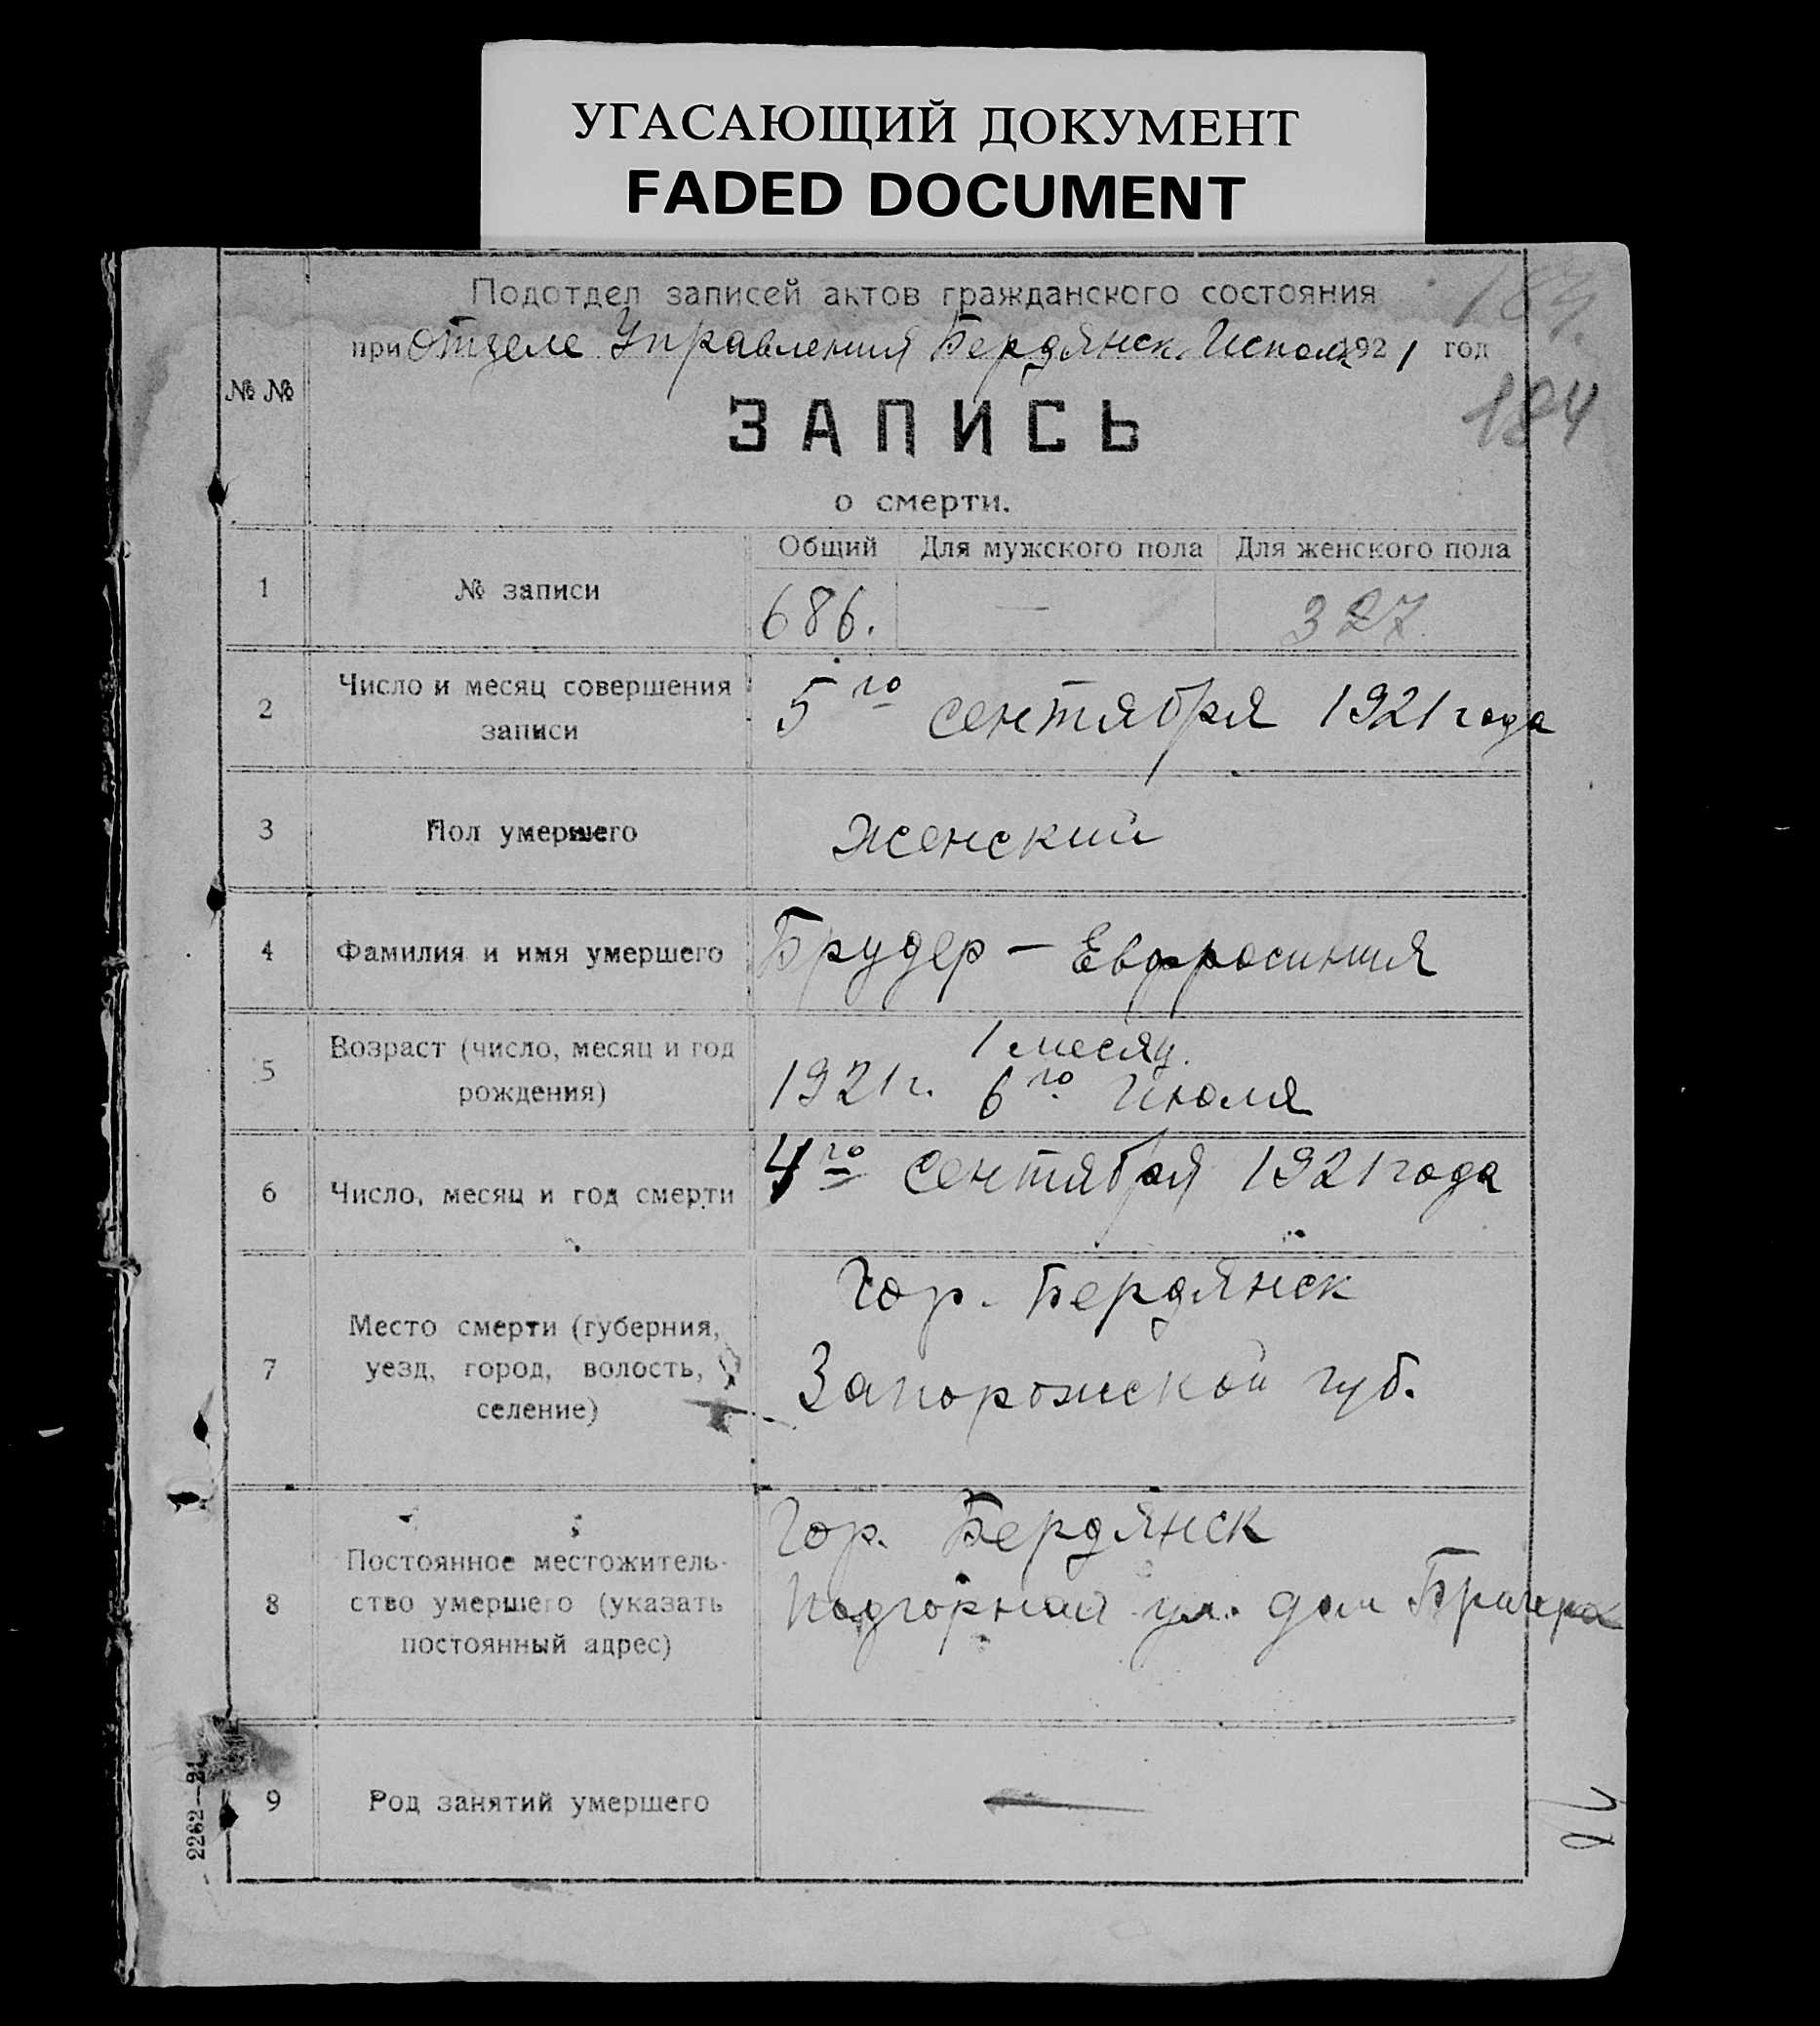 УГАСАЮЩИЙ ДОКУМЕНТ
FADED DOCUMENT
Подотдел записей актов гражданского состояния
при Отделе Управления Бердянск. Исполк 1921 год
№ №
184
ЗАПИСЬ
о смерти.
Общий Для мужского пола Для женского пола
1 № записи 686. — 327
2 Число и месяц совершения записи 5го сентября 1921 года
3 Пол умершего женский
4 Фамилия и имя умершего Брудер - Евфросиния
1 месяц.
5 Возраст (число, месяц и год рождения) 1921 г. 6го Июля
6 Число, месяц и год смерти 4го сентября 1921 года
Гор. Бердянск
7 Место смерти (губерния, уезд, город, волость, селение) Запорожской губ.
Гор. Бердянск
8 Постоянное местожитель-
ство умершего (указать постоянный адрес) Подгорная ул. дом
9 Род занятий умершего —
2262—21